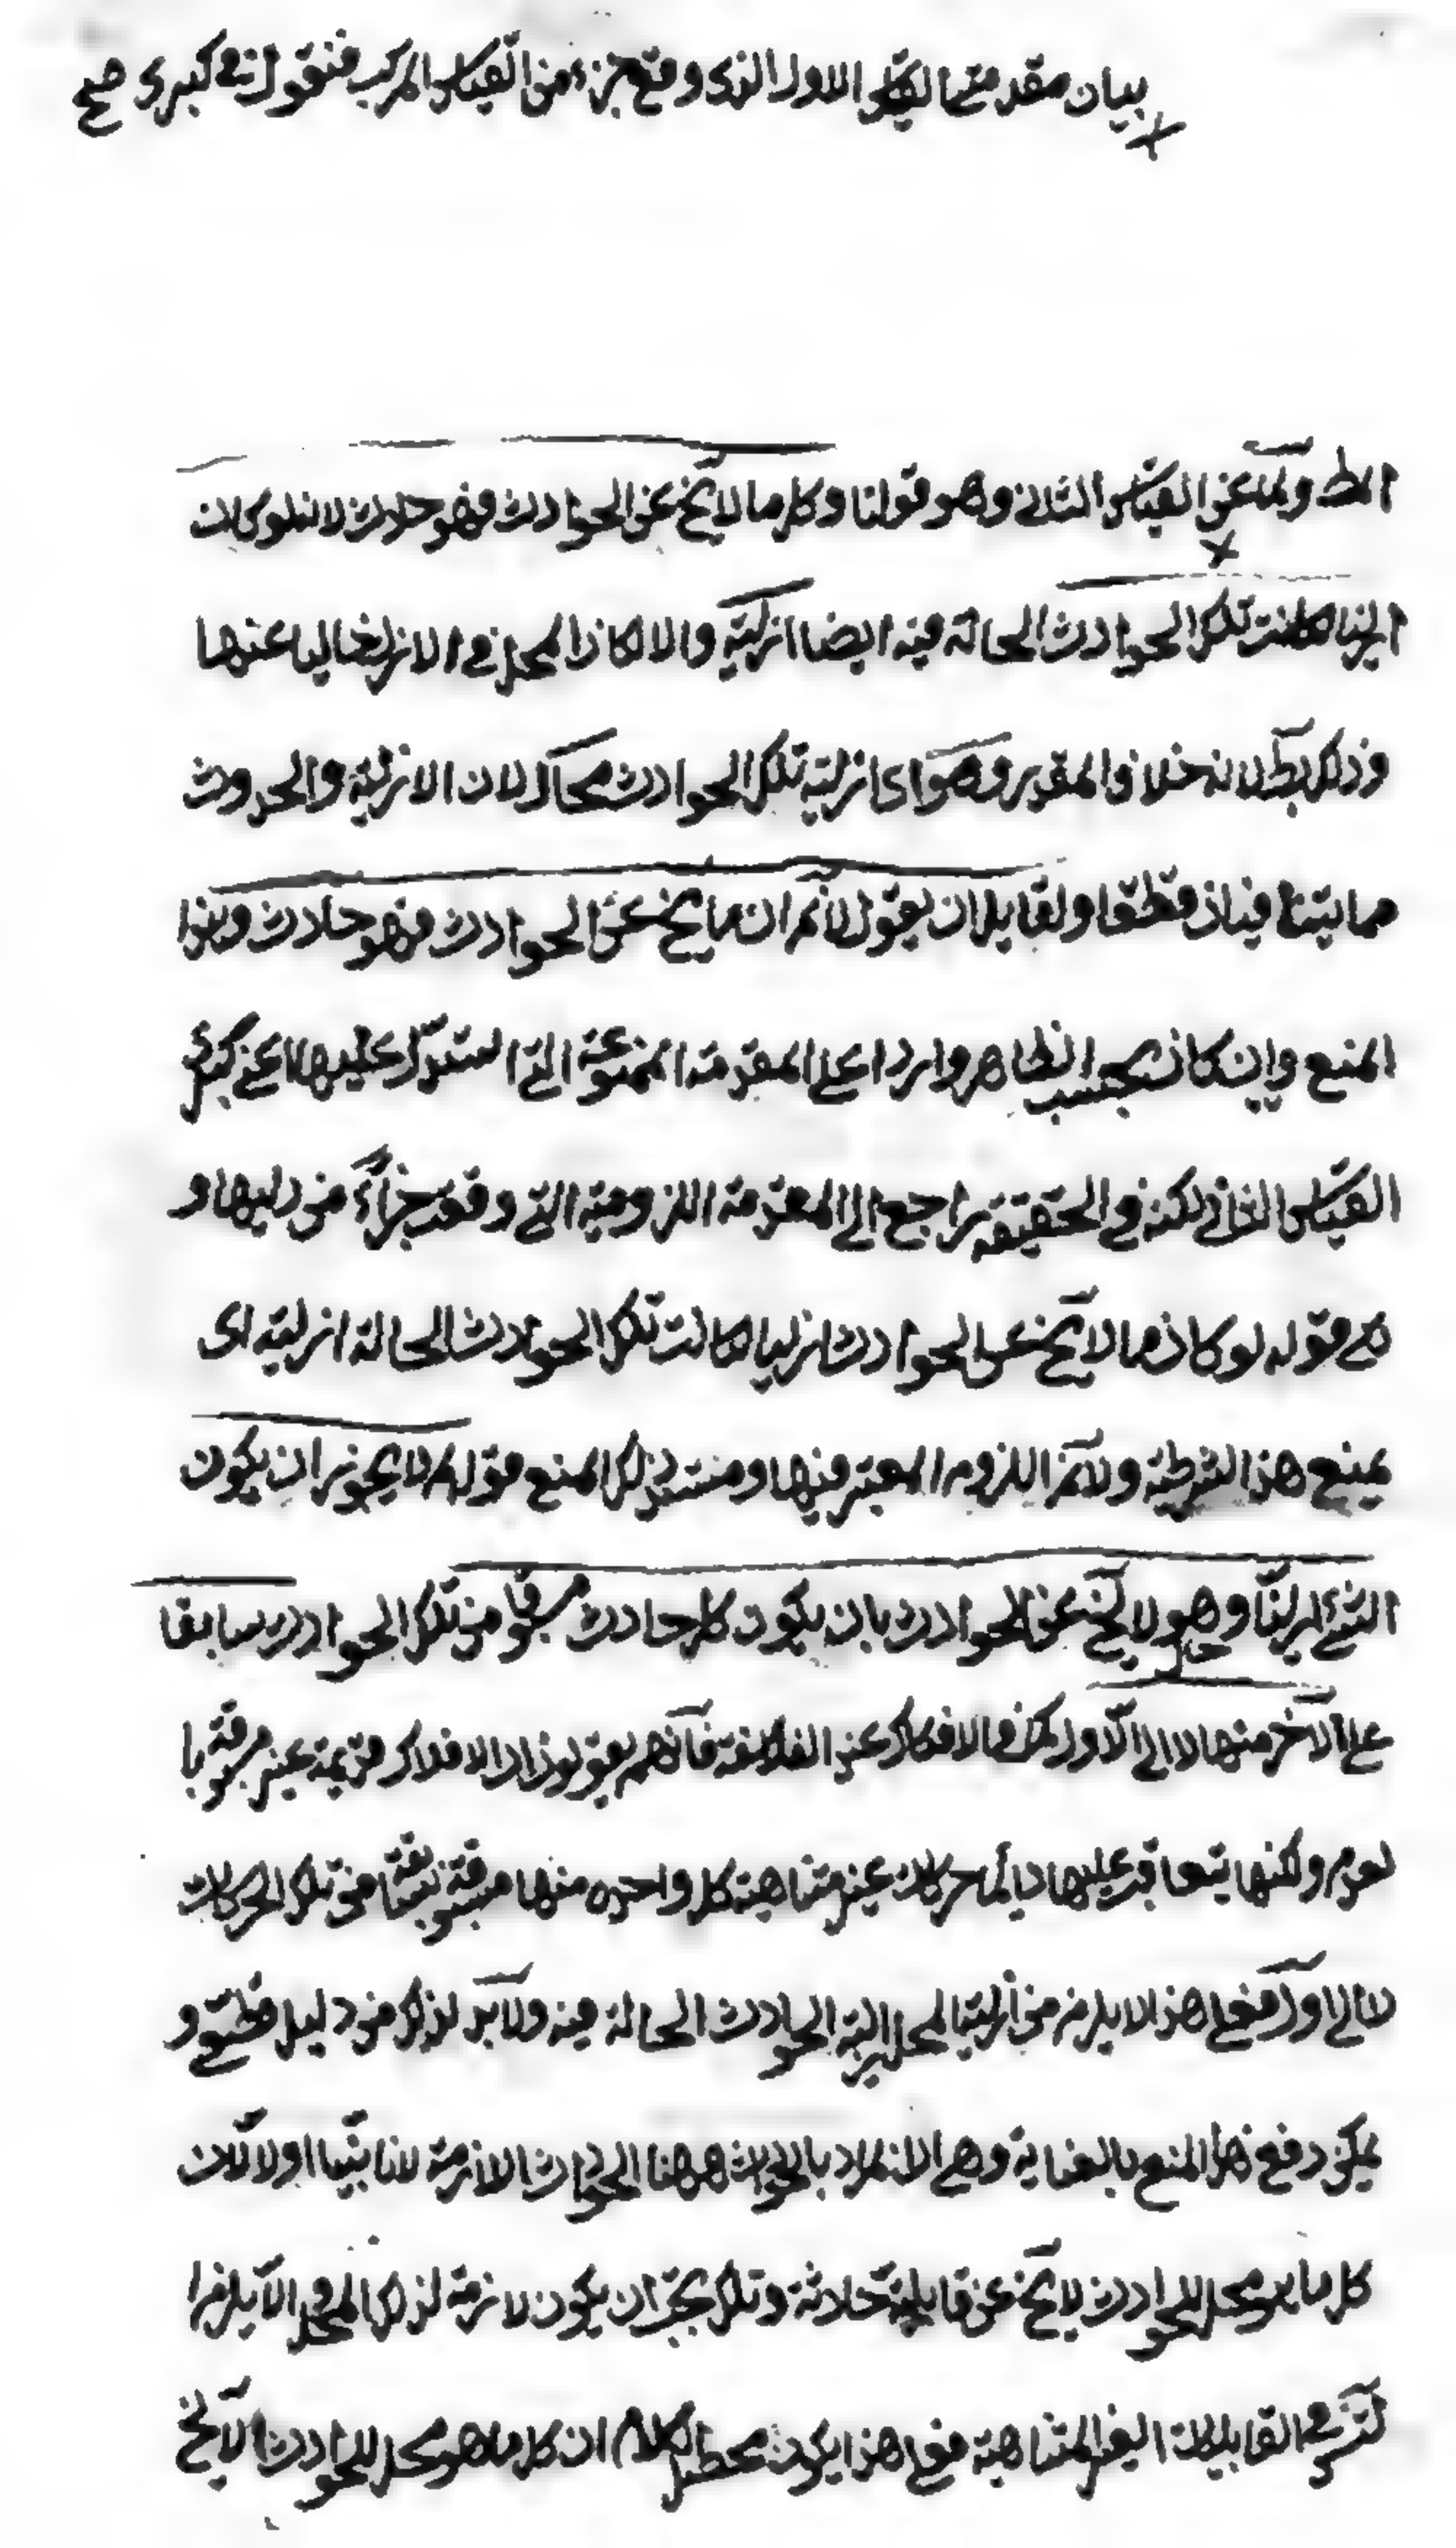 بيان مقدمتى القياس الاول الذى وقع جزء من القياس المركب فنقول فى كبرى صح
المط ولما عن القياس الثانى وهو قولنا وكل ما لا يخ عن الحوادث فهو حادث لانه لو كان
ازليا لكانت تلك الحوادث الحالة فيه ايضا ازلية والا لكان المحل فى الازل خاليا عنها
وذلك بط لانه خلاف المقدر وهو اى ازلية تلك الحوادث محال لان الازلية والحدوث
مما يتنافيان قطعا ولقايل ان يقول لانم ان ما يخ عن الحوادث فهو حادث وهذا
المنع وان كان بحسب الظاهر واردا على المقدمة الممنوعة التى استدل عليها اعنى كبرى
القياس الثانى لكنه فى الحقيقة راجع الى المقدمة اللزومية التى وقعت جزأ من دليلها و
هى قوله لو كان ما لا يخ عن الحوادث ازليا لكانت تلك الحوادث الحالة ازلية اى
يمنع هذا الشرطية ولانم اللزوم المعتبر فيها ومستند ذلك المنع قوله لم لا يجوز ان يكون
الشئ ازليا وهو لا يخ عن الحوادث بان يكون كل حادث مسبوقا من تلك الحوادث سابقا
على الاخر منها لا الى الاول كما فى الافلاك عند الفلاسفة فانهم يقولون ان الافلاك قديمة غير مسبوقة با
لعدم ولكنها يتعاقب عليها دايما حركات غير متناهية كل واحدة منها مسبوقة بسابقة من تلك الحركات
لا الى اول فعلى هذا لا يلزم من ازلية المحل ازلية الحوادث الحالة فيه ولا بد لذلك من دليل قطعى و
يمكن دفع هذا المنع بالعناية وهى ان المراد بالحوادث ههنا الحوادث اللازمة لانا بينا اولا ان
كل ما هو محل للحوادث لا يخ عن قابلية حادثة وتلك يجب ان يكون لازمة لذلك المحل والا يلزم
التس فى القابليات الغير المتناهية فعلى هذا يكون محصل الكلام ان كل ما هو محل للحوادث لا يخ